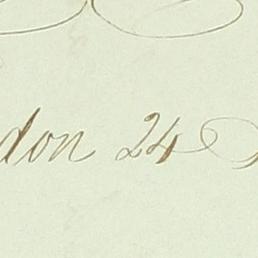 don 24